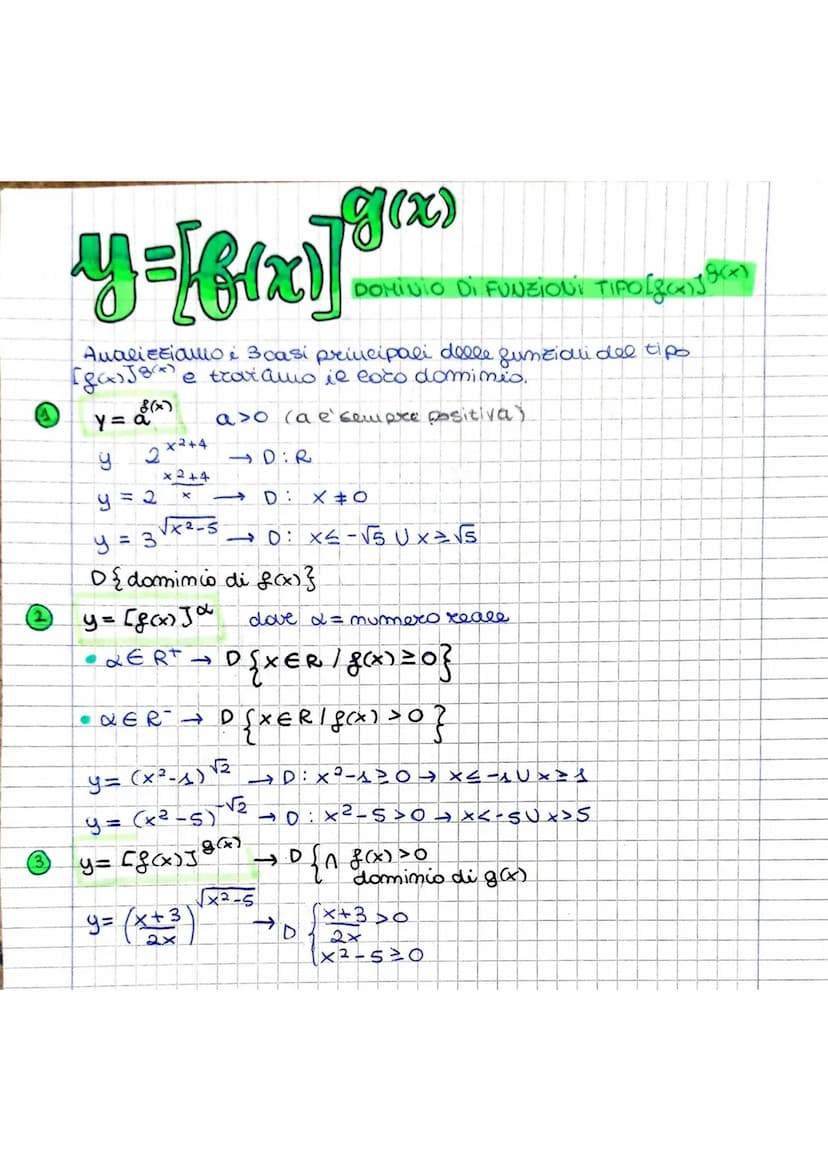 y=[f(x)]^g(x)
DOMINIO DI FUNZIONI TIPO [f(x)]^g(x)
Analizziamo i 3 casi principali delle funzioni del tipo
[f(x)]^g(x) e troviamo il loro dominio.
1 y = a^f(x) a>0 (a è sempre positiva)
y 2^(x²+4) → D: R
y = 2^((x²+4)/x) → D: x ≠ 0
y = 3^√(x²-5) → D: x ≤ -√5 U x ≥ √5
D{dominio di f(x)}
2 y = [f(x)]^α dove α = numero reale
• α ∈ R⁺ → D {x ∈ R / f(x) ≥ 0}
• α ∈ R⁻ → D {x ∈ R / f(x) > 0}
y = (x²-1)^√2 → D: x²-1 ≥ 0 → x ≤ -1 U x ≥ 1
y = (x²-5)^-√2 → D: x²-5 > 0 → x < -5 U x > 5
3 y = [f(x)]^g(x) → D { ∩ f(x) > 0
dominio di g(x)
y = ((x+3)/2x)^√(x²-5) → D { (x+3)/2x > 0
x²-5 ≥ 0